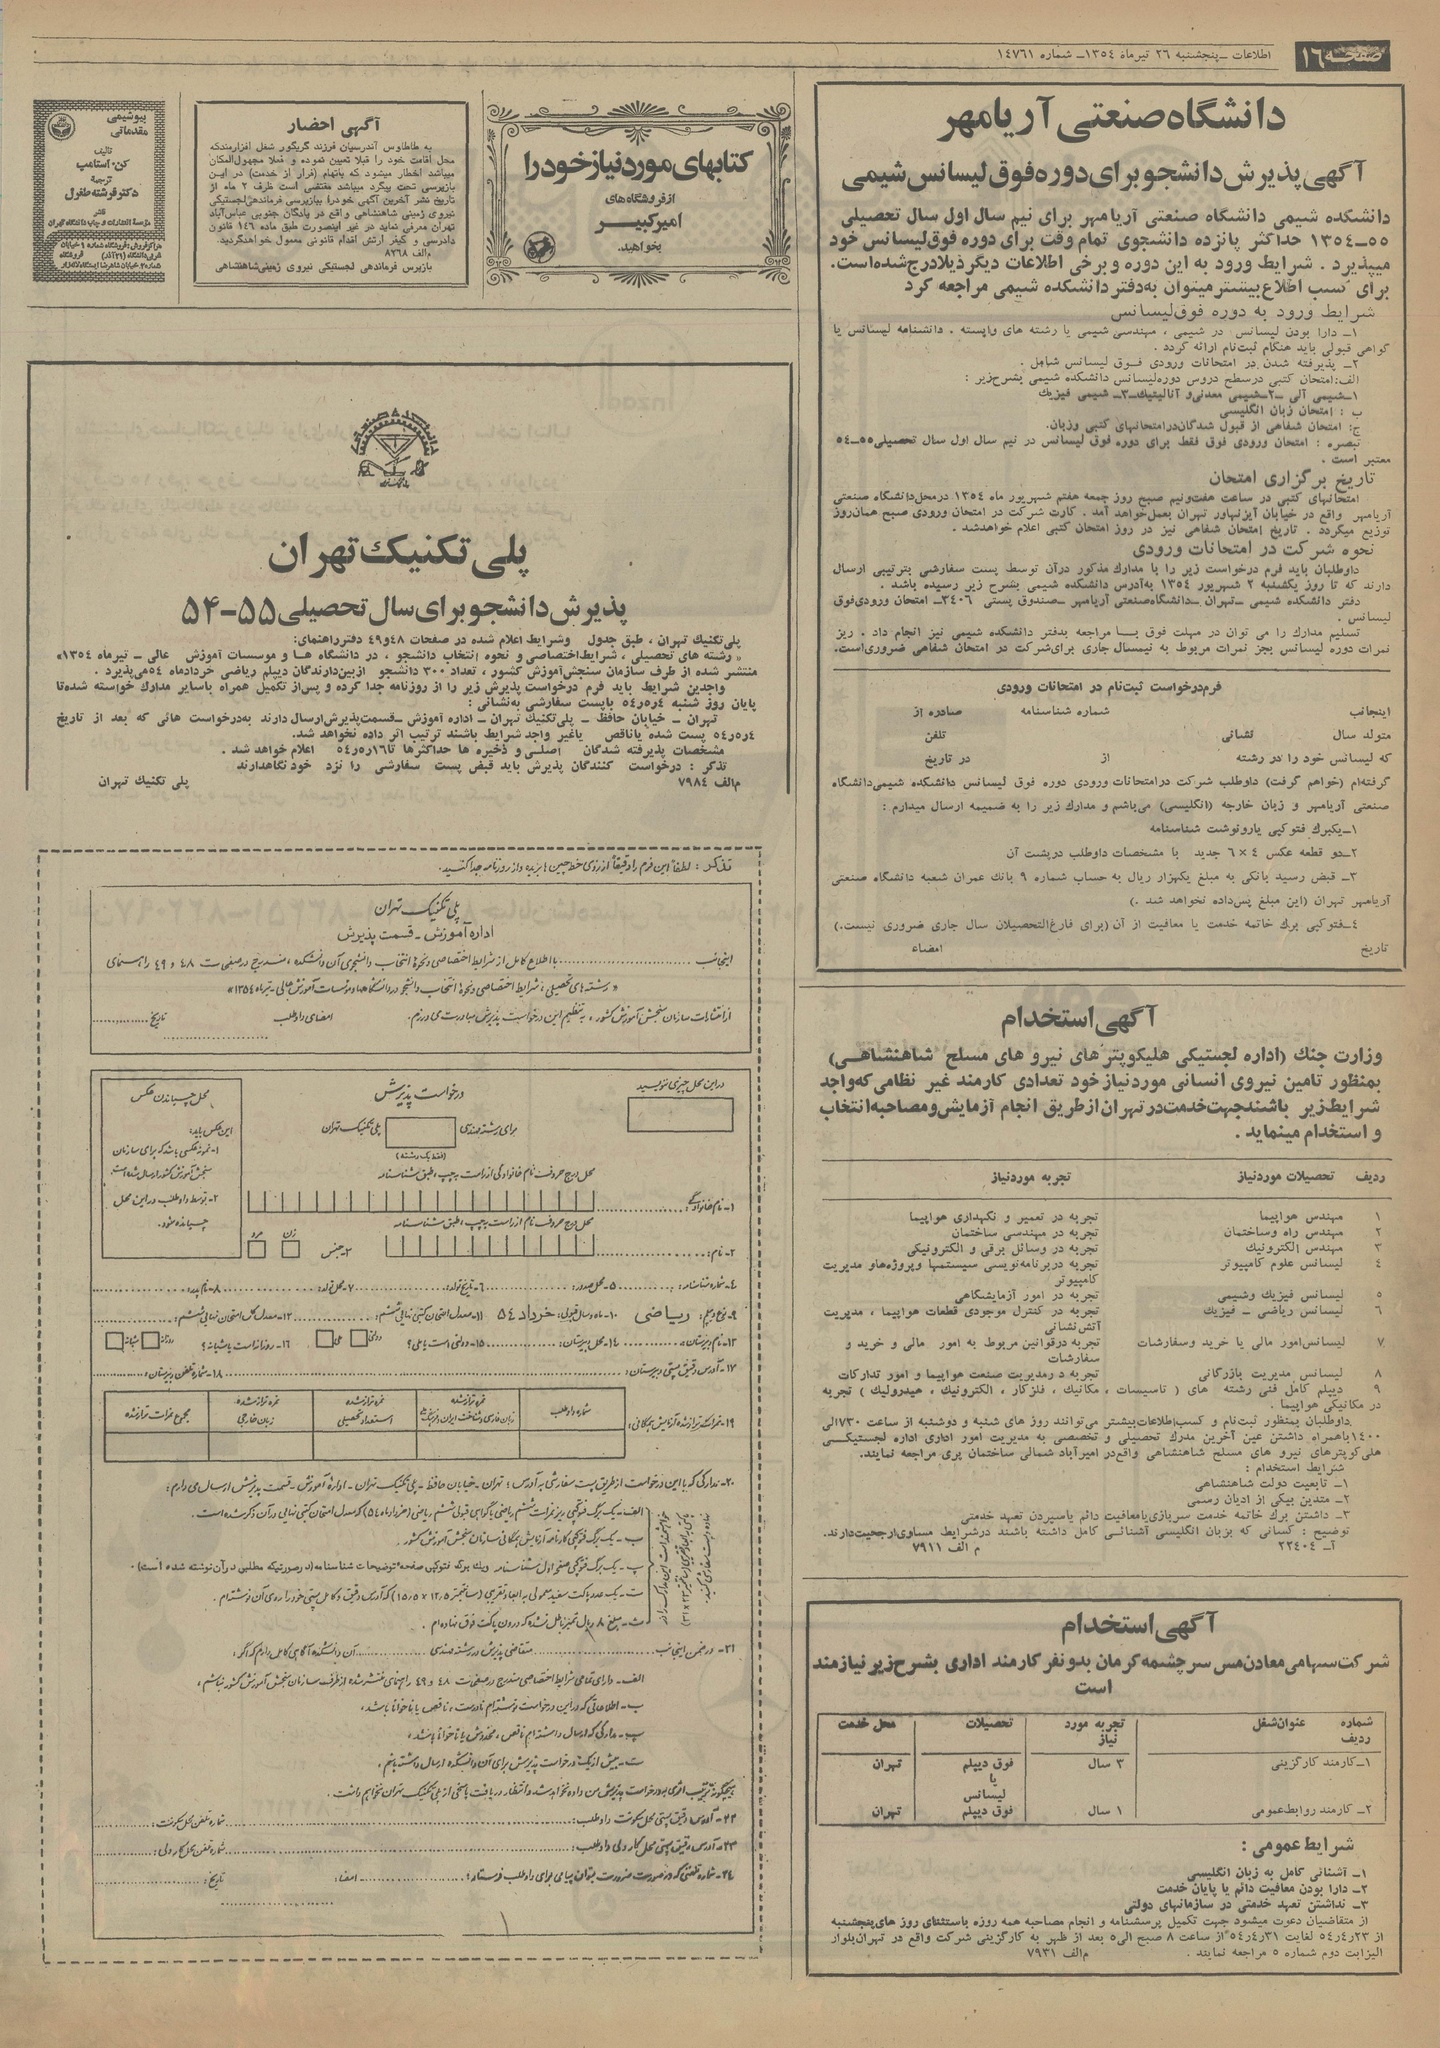 صفحه ۱۶
اطلاعات ـ پنجشنبه ۲۶ تیرماه ۱۳۵۴ـ شماره ۱۴۷۶۱
دانشگاه صنعتی آریامهر
آگهی پذیرش دانشجو برای دوره فوق لیسانس شیمی
دانشکده شیمی دانشگاه صنعتی آریامهر برای نیم سال اول سال تحصیلی
۱۳۵۴ـ۵۵ حداکثر پانزده دانشجوی تمام وقت برای دوره فوق‌لیسانس خود
میپذیرد . شرایط ورود به این دوره و برخی اطلاعات دیگر ذیلا درج شده است.
برای کسب اطلاع بیشتر میتوان به‌دفتر دانشکده شیمی مراجعه کرد
شرایط ورود به دوره فوق‌لیسانس
۱ـ دارا بودن لیسانس در شیمی ، مهندسی شیمی یا رشته های وابسته . دانشنامه لیسانس یا
گواهی قبولی باید هنگام ثبت‌نام ارائه گردد .
۲ـ پذیرفته شدن در امتحانات ورودی فوق لیسانس شامل .
الف: امتحان کتبی درسطح دروس دوره لیسانس دانشکده شیمی بشرح‌زیر :
۱ـ شیمی آلی ـ۲ـ شیمی معدنی و آنالیتیک ـ۳ـ شیمی فیزیک
ب : امتحان زبان انگلیسی
ج: امتحان شفاهی از قبول شدگان درامتحانهای کتبی وزبان.
تبصره : امتحان ورودی فوق فقط برای دوره فوق لیسانس در نیم سال اول سال تحصیلی ۵۵ـ۵۴
معتبر است .
تاریخ برگزاری امتحان
امتحانهای کتبی در ساعت هفت‌ونیم صبح روز جمعه هفتم شهریور ماه ۱۳۵۴ درمحل‌دانشگاه صنعتی
آریامهر واقع در خیابان آیزنهاور تهران بعمل‌خواهد آمد . کارت شرکت در امتحان ورودی صبح همان‌روز
توزیع میگردد . تاریخ امتحان شفاهی نیز در روز امتحان کتبی اعلام خواهدشد .
نحوه شرکت در امتحانات ورودی
داوطلبان باید فرم درخواست زیر را با مدارک مذکور درآن توسط پست سفارشی بترتیبی ارسال
دارند که تا روز یکشنبه ۲ شهریور ۱۳۵۴ به‌آدرس دانشکده شیمی بشرح زیر رسیده باشد .
دفتر دانشکده شیمی ـ تهران ـ دانشگاه‌صنعتی آریامهر ـ صندوق پستی ۳۴۰۶ـ امتحان ورودی‌فوق
لیسانس .
تسلیم مدارک را می توان در مهلت فوق بـا مراجعه بدفتر دانشکده شیمی نیز انجام داد . ریز
نمرات دوره لیسانس بجز نمرات مربوط به نیمسال جاری برای‌شرکت در امتحان شفاهی ضروری‌است.
فرم‌درخواست ثبت‌نام در امتحانات ورودی
اینجانب شماره شناسنامه صادره از
متولد سال نشانی تلفن
که لیسانس خود را در رشته از در تاریخ
گرفته‌ام (خواهم گرفت) داوطلب شرکت درامتحانات ورودی دوره فوق لیسانس دانشکده شیمی‌دانشگاه
صنعتی آریامهر و زبان خارجه (انگلیسی) می‌باشم و مدارک زیر را به ضمیمه ارسال میدارم :
۱ـ یکبرگ فتوکپی یارونوشت شناسنامه
۲ـ دو قطعه عکس ۴ × ۶ جدید با مشخصات داوطلب درپشت آن
۳ـ قبض رسید بانکی به مبلغ یکهزار ریال به حساب شماره ۹ بانک عمران شعبه دانشگاه صنعتی
آریامهر تهران (این مبلغ پس‌داده نخواهد شد .)
۴ـ فتوکپی برگ خاتمه خدمت یا معافیت از آن (برای فارغ‌التحصیلان سال جاری ضروری نیست.)
تاریخ امضاء
آگهی استخدام
وزارت جنگ (اداره لجستیکی هلیکوپترهای نیرو های مسلح شاهنشاهی)
بمنظور تامین نیروی انسانی موردنیاز خود تعدادی کارمند غیر نظامی که‌واجد
شرایط زیر باشند جهت خدمت در تهران از طریق انجام آزمایش ومصاحبه انتخاب
و استخدام مینماید .
ردیف تحصیلات موردنیاز تجربه موردنیاز
۱ مهندس هواپیما تجربه در تعمیر و نگهداری هواپیما
۲ مهندس راه وساختمان تجربه در مهندسی ساختمان
۳ مهندس الکترونیک تجربه در وسائل برقی و الکترونیکی
۴ لیسانس علوم کامپیوتر تجربه دربرنامه‌نویسی سیستمها وپروژه‌های مدیریت
کامپیوتر
۵ لیسانس فیزیک وشیمی تجربه در امور آزمایشگاهی
۶ لیسانس ریاضی ـ فیزیک تجربه در کنترل موجودی قطعات هواپیما ، مدیریت
آتش‌نشانی
۷ لیسانس‌امور مالی یا خرید وسفارشات تجربه درقوانین مربوط به امور مالی و خرید و
سفارشات
۸ لیسانس مدیریت بازرگانی تجربه د رمدیریت صنعت هواپیما و امور تدارکات
۹ دیپلم کامل فنی رشته های ( تاسیسات ، مکانیک ، فلزکار ، الکترونیک ، هیدرولیک ) تجربه
در مکانیکی هواپیما .
داوطلبان بمنظور ثبت‌نام و کسب‌اطلاعات‌بیشتر می‌توانند روز های شنبه و دوشنبه از ساعت ۷۳۰الی
۱۴۰۰باهمراه داشتن عین آخرین مدرک تحصیلی و تخصصی به مدیریت امور اداری اداره لجستیکی
هلی‌کوپترهای نیرو های مسلح شاهنشاهی واقع‌در امیرآباد شمالی ساختمان پری مراجعه نمایند.
شرایط استخدام :
۱ـ تابعیت دولت شاهنشاهی
۲ـ متدین بیکی از ادیان رسمی
۳ـ داشتن برگ خاتمه خدمت سربازی‌یامعافیت دائم یاسپردن تعهد خدمتی
توضیح : کسانی که بزبان انگلیسی آشنائی کامل داشته باشند درشرایط مساوی‌ارجحیت‌دارند.
آـ ۲۲۴۰۴ م الف ۷۹۱۱
آگهی استخدام
شرکت سهامی معادن مس سرچشمه کرمان بدو نفر کارمند اداری بشرح زیر نیازمند
است
شماره ردیف عنوان شغل تجربه مورد نیاز تحصیلات محل خدمت
۱ـ کارمند کارگزینی ۳ سال فوق دیپلم یا لیسانس تهران
۲ـ کارمند روابط‌عمومی ۱ سال فوق دیپلم تهران
شرایط عمومی :
۱ـ آشنائی کامل به زبان انگلیسی
۲ـ دارا بودن معافیت دائم یا پایان خدمت
۳ـ نداشتن تعهد خدمتی در سازمانهای دولتی
از متقاضیان دعوت میشود جهت تکمیل پرسشنامه و انجام مصاحبه همه روزه باستثنای روز های‌پنجشنبه
از ۵۴ر۴ر۲۳ لغایت ۵۴ر۴ر۳۱ از ساعت ۸ صبح الی۵ بعد از ظهر به کارگزینی شرکت واقع در تهران‌بلوار
الیزابت دوم شماره ۵ مراجعه نمایند . م‌الف ۷۹۳۱
کتابهای مورد نیاز خود را
از فروشگاه های
امیرکبیر
بخواهید.
آگهی احضار
به طاطاوس آندرسیان فرزند گریگور شغل افزارمندکه
محل اقامت خود را قبلا تعیین ننموده و فعلا مجهول‌المکان
میباشد اخطار میشود که باتهام (فرار از خدمت) در این
بازپرسی تحت پیگرد میباشد مقتضی است ظرف ۲ ماه از
تاریخ نشر آخرین آگهی خودرا ببازپرسی فرماندهی‌لجستیکی
نیروی زمینی شاهنشاهی واقع در پادگان جنوبی عباس‌آباد
تهران معرفی نماید در غیر اینصورت طبق ماده ۱۴۶ قانون
دادرسی و کیفر ارتش اقدام قانونی معمول خواهدگردید.
م‌الف ۸۲۶۸
بازپرس فرماندهی لجستیکی نیروی زمینی‌شاهنشاهی
بیوشیمی
مقدماتی
تالیف
کن. استامب
ترجمه
دکتر فرشته طغرل
ناشر
مؤسسهٔ انتشارات و چاپ دانشگاه تهران
مراکز فروش: فروشگاه شماره ۱ خیابان
پلی تکنیک تهران
پذیرش دانشجو برای سال تحصیلی ۵۵-۵۴
پلی‌تکنیک تهران ، طبق جدول وشرایط اعلام شده در صفحات ۴۸و۴۹ دفترراهنمای:
« رشته های تحصیلی ، شرایط‌اختصاصی و نحوه انتخاب دانشجو ، در دانشگاه هـا و موسسات آموزش عالی ـ تیرماه ۱۳۵۴»
منتشر شده از طرف سازمان سنجش‌آموزش کشور ، تعداد ۳۰۰ دانشجو ازبین‌دارندگان دیپلم ریاضی خردادماه ۵۴می‌پذیرد .
واجدین شرایط باید فرم درخواست پذیرش زیر را از روزنامه جدا کرده و پس‌از تکمیل همراه باسایر مدارک خواسته شده‌تا
پایان روز شنبه ۵۴ر۵ر۴ باپست سفارشی به‌نشانی :
تهران ـ خیابان حافظ ـ پلی‌تکنیک تهران ـ اداره آموزش ـ قسمت‌پذیرش‌ارسال دارند به‌درخواست هائی که بعد از تاریخ
۵۴ر۵ر۴ پست شده یاناقص یاغیر واجد شرایط باشند ترتیب اثر داده نخواهد شد.
مشخصات پذیرفته شدگان اصلـی و ذخیره ها حداکثرها تا۵۴ر۵ر۱۶ اعلام خواهد شد .
تذکر : درخواست کنندگان پذیرش باید قبض پست سفارشی را نزد خود نگاهدارند
م‌الف ۷۹۸۴ پلی تکنیک تهران
تذکر : لطفاً این فرم را دقیقاً از روی خط چین ها بریده و از روزنامه جدا کنید.
پلی تکنیک تهران
اداره آموزش ـ قسمت پذیرش
اینجانب .......... با اطلاع کامل از شرایط اختصاصی و نحوهٔ انتخاب دانشجوی آن دانشکده ، مندرج در صفحات ۴۸ و ۴۹ راهنمای
« رشته های تحصیلی ، شرایط اختصاصی و نحوهٔ انتخاب دانشجو در دانشگاهها و مؤسسات آموزش عالی ـ تیرماه ۱۳۵۴»
از انتشارات سازمان سنجش آموزش کشور ، به تنظیم این درخواست پذیرش مبادرت می ورزم. امضای داوطلب تاریخ
در این محل چیزی ننویسید
درخواست پذیرش
برای رشته مهندسی پلی تکنیک تهران
(فقط یک رشته)
محل چسباندن عکس
این عکس باید:
۱- نمونه عکسی باشد که برای سازمان
سنجش آموزش کشور ارسال شده است.
۲- توسط داوطلب در این محل
چسبانده شود.
محل درج حروف نام خانوادگی از راست به چپ ، طبق شناسنامه
۱- نام خانوادگی
محل درج حروف نام از راست به چپ ، طبق شناسنامه
۲- نام: ۳- جنس زن مرد
۴- شماره شناسنامه: ۵- محل صدور: ۶- تاریخ تولد: ۷- محل تولد: ۸- نام پدر:
۹- نوع دیپلم: ریاضی ۱۰- ماه و سال قبولی: خرداد ۵۴ ۱۱- معدل امتحان کتبی نهایی ششم: ۱۲- معدل کل امتحان نهایی ششم:
۱۳- نام دبیرستان: ۱۴- محل دبیرستان: ۱۵- دولتی است یا ملی؟ دولتی ملی ۱۶- روزانه است یا شبانه؟ روزانه شبانه
۱۷- آدرس دقیق پستی دبیرستان: ۱۸- شماره تلفن دبیرستان:
۱۹- نمرات تراز شده آزمایش همگانی:
شماره داوطلب
نمره تراز شده زبان فارسی و شناخت ایران و فرهنگ ملی
نمره تراز شده استعداد تحصیلی
نمره تراز شده زبان خارجی
مجموع نمرات تراز شده
۲۰- مدارکی که با این درخواست از طریق پست سفارشی به آدرس: تهران - خیابان حافظ - پلی تکنیک تهران - اداره آموزش - قسمت پذیرش ارسال می دارم:
الف- یک برگ فتوکپی ریز نمرات ششم ریاضی یا گواهی قبولی ششم ریاضی (خرداد ماه ۵۴) که معدل امتحان کتبی نهایی در آن ذکر شده است.
ب- یک برگ فتوکپی کارنامه آزمایش همگانی سازمان سنجش آموزش کشور.
پ- یک برگ فتوکپی صفحه اول شناسنامه ویک برگ فتوکپی صفحهٔ توضیحات شناسنامه (درصورتیکه مطلبی درآن نوشته شده است)
ت- یک عدد پاکت سفید معمولی به ابعاد تقریبی (سانتیمتر ۱۲٫۵ × ۱۵٫۵) که آدرس دقیق و کامل پستی خود را روی آن نوشته ام.
ث- مبلغ ۸ ریال تمبر باطل نشده که درون پاکت فوق نهاده ام.
۲۱- در ضمن اینجانب متقاضی پذیرش در رشته مهندسی آن دانشکده آگاهی کامل دارم که اگر:
الف- دارای تمامی شرایط اختصاصی مندرج در صفحات ۴۸ و ۴۹ راهنمای منتشر شده از طرف سازمان سنجش آموزش کشور نباشم ،
ب- اطلاعاتی که در این درخواست نوشته ام نادرست ، ناقص یا ناخوانا باشد ،
پ- مدارکی که ارسال داشته ام ناقص ، مخدوش یا ناخوانا باشد ،
ت- بیش از یک درخواست پذیرش برای آن دانشکده ارسال داشته باشم ،
هیچگونه ترتیب اثری به درخواست پذیرش من داده نخواهد شد و انتظار دریافت پاسخی از پلی تکنیک تهران نخواهم داشت.
۲۲- آدرس دقیق پستی محل سکونت داوطلب: شماره تلفن محل سکونت:
۲۳- آدرس دقیق پستی محل کار ولی داوطلب: شماره تلفن محل کار ولی:
۲۴- شماره تلفنی که در صورت ضرورت بتوان پیامی برای داوطلب فرستاد: امضا: تاریخ: